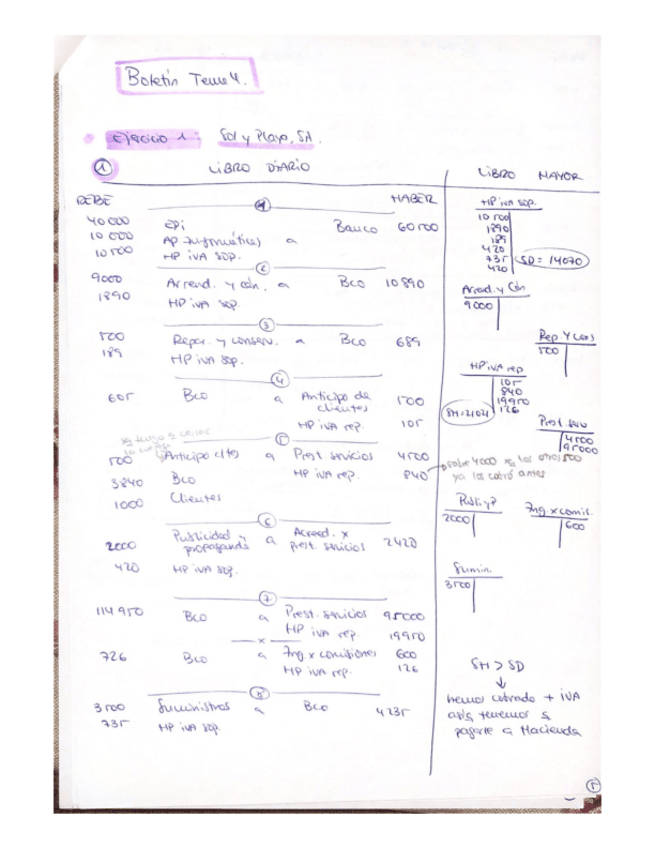 Boletín Tema 4.
Ejercicio 1: Sol y Playa, SA.
1 LIBRO DIARIO
LIBRO MAYOR
DEBE HABER
1
40000 EPI Banco 60500
10000 Ap. Informáticas a
10500 HP IVA SOP.
2
9000 Arrend. y cán. a Bco 10890
1890 HP IVA sop.
3
500 Repar. y conserv. a Bco 689
189 HP IVA sop.
4
605 Bco a Anticipo de clientes 500
HP IVA rep. 105
5
500 Anticipo cltes a Prest. servicios 4500
3840 Bco HP IVA rep. 840
1000 Clientes
6
2000 Publicidad y propaganda a Acreed. x prest. servicios 2420
420 HP IVA sop.
7
114950 Bco a Prest. servicios 95000
HP IVA rep. 19950
x
726 Bco a Ing. x comisiones 600
HP IVA rep. 126
8
3500 Suministros a Bco 4235
735 HP IVA sop.
HP IVA sop.
10500
1890
189
420
735
420
SD = 14070
Arrend. y Cán
9000
Rep. Y cons
500
HP IVA rep
105
840
19950
126
SH=21021
Prest. serv
4500
95000
sobre 4000 los otros 500
ya los cobró antes
Publi y P
2000
Ing. x comis.
600
Sumin.
3500
SH > SD
↓
hemos cobrado + IVA
asíq tenemos q
pagarle a Hacienda